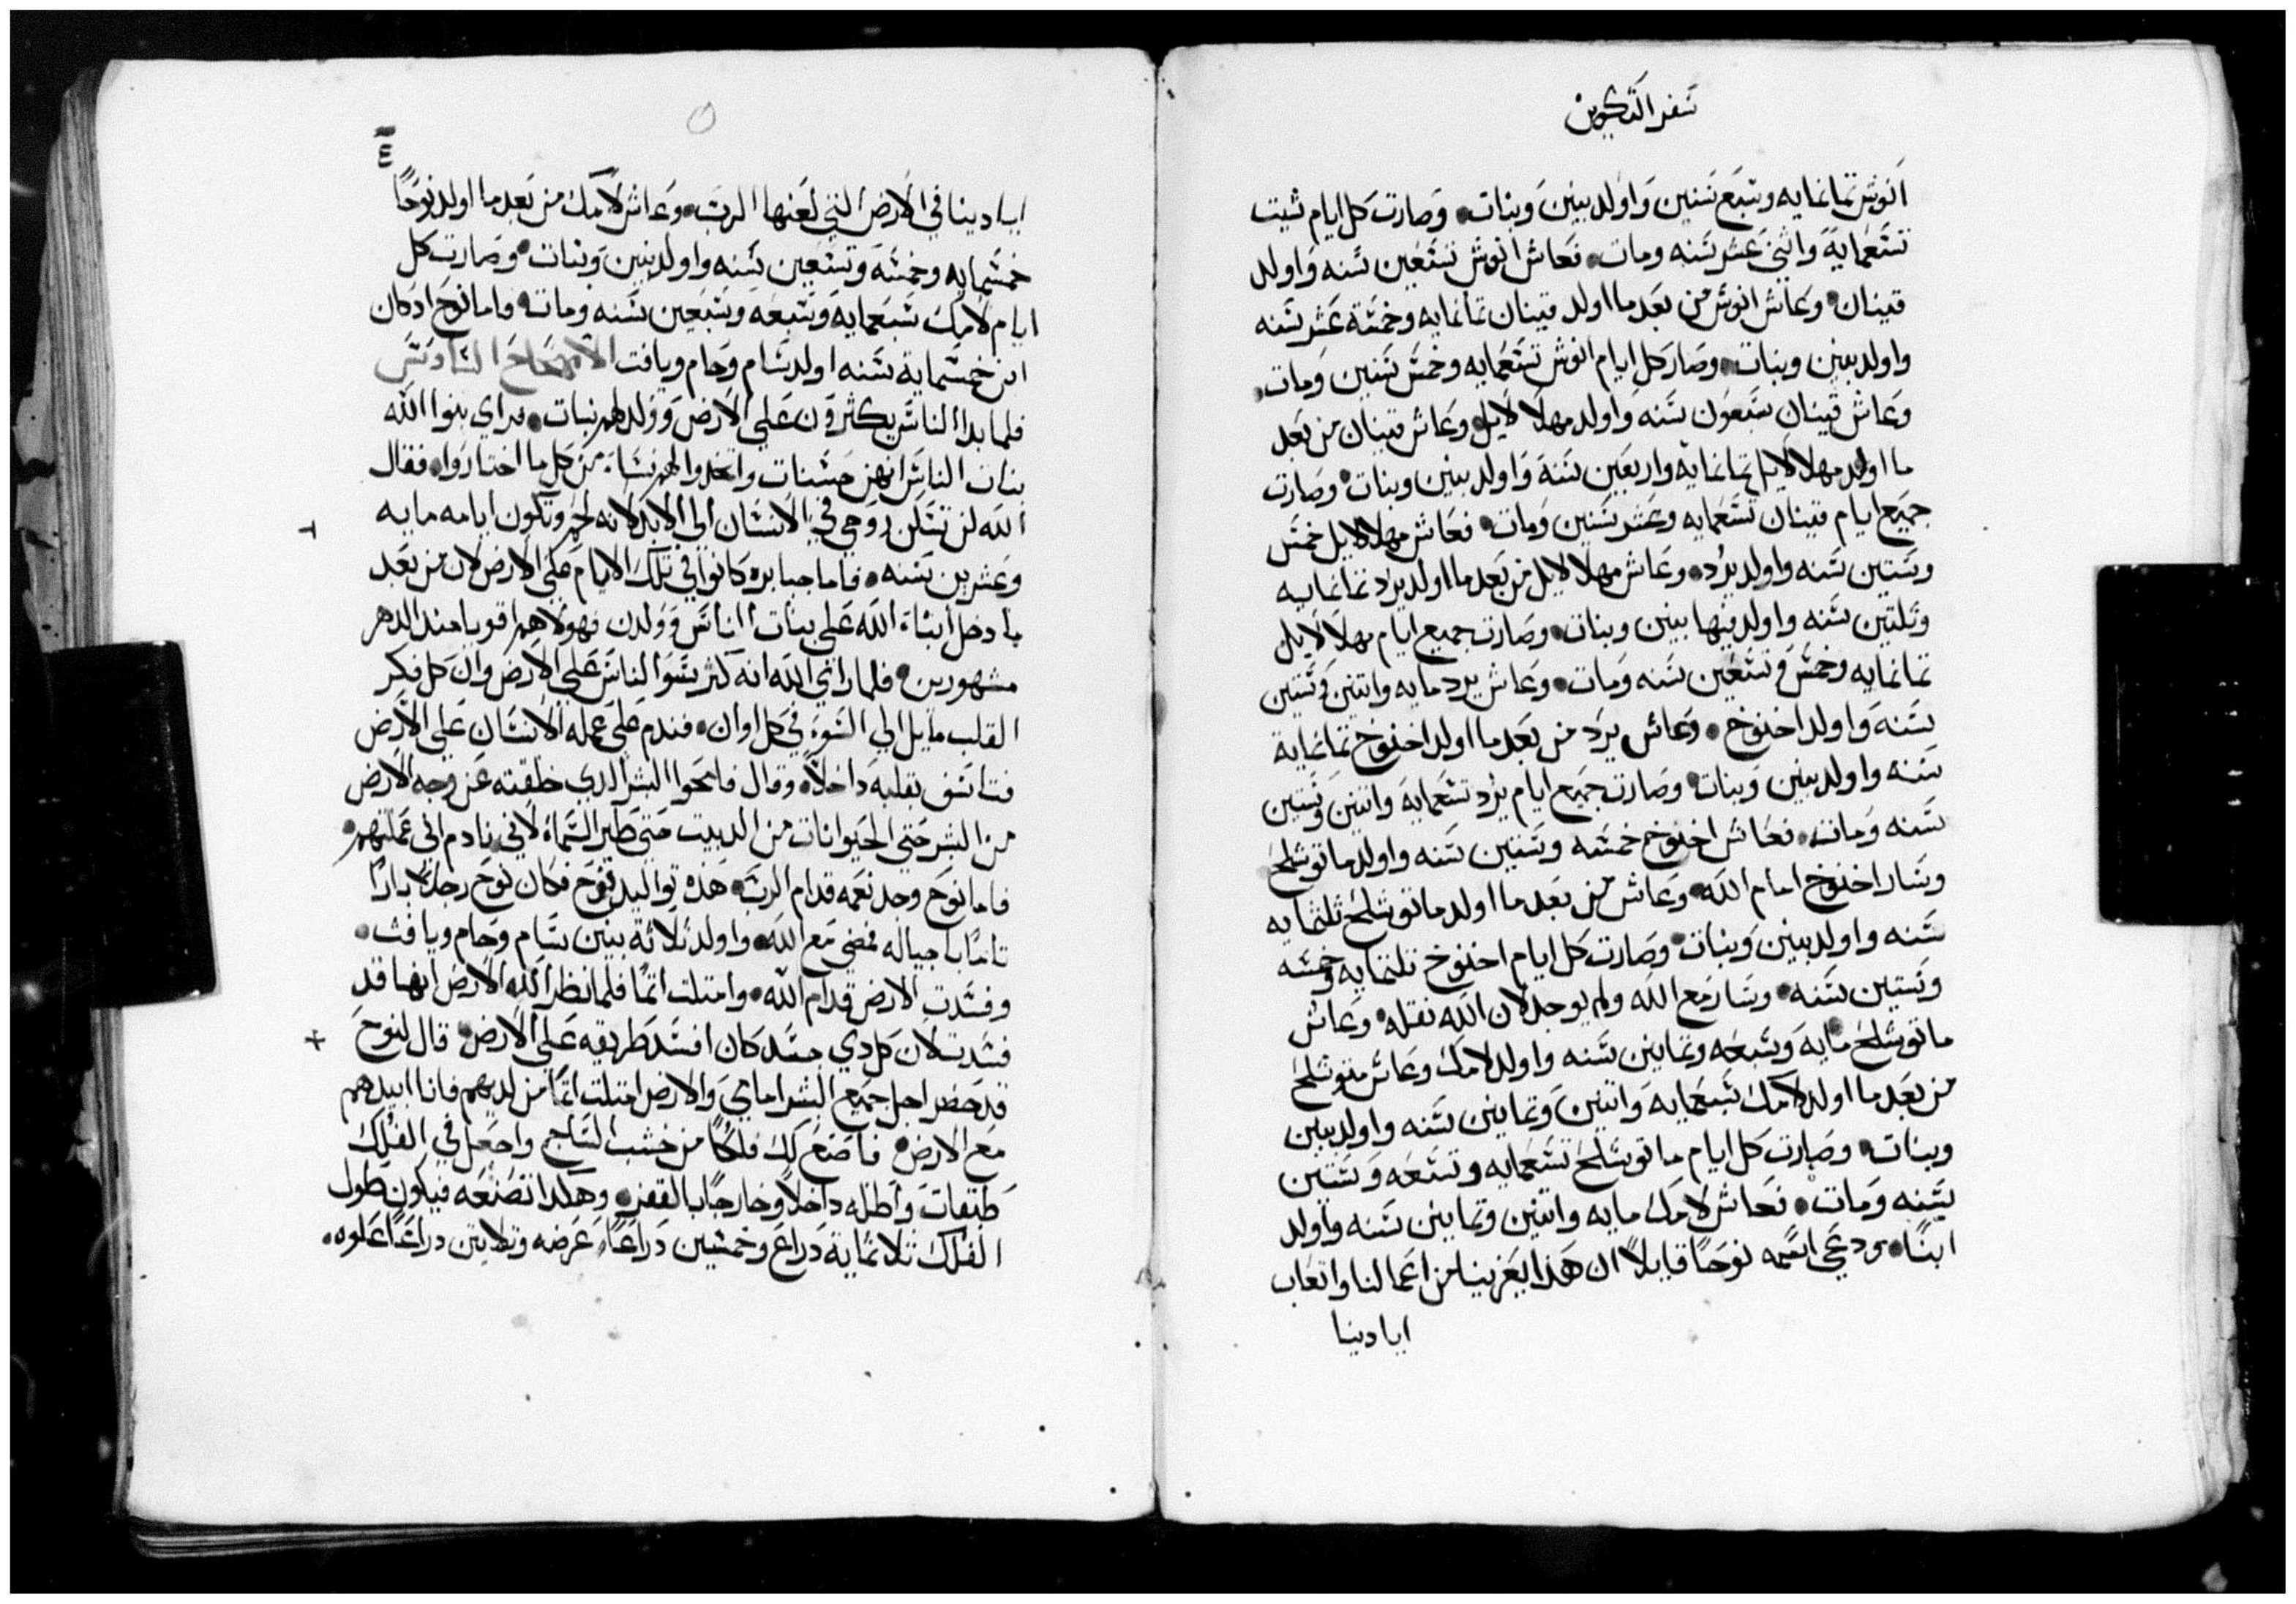 سفر التكوين
انوش تمانمايه وسبع سنين واولد بنين وبنات وصارت كل ايام شيت
تسعمايه واثني عشر سنه ومات فعاش انوش تسعين سنه واولد
قينان وعاش انوش من بعد ما اولد قينان تمانمايه وخمسة عشر سنه
واولد بنين وبنات وصار كل ايام انوش تسعمايه وخمس سنين ومات
وعاش قينان سبعون سنه واولد مهلالايل وعاش قينان من بعد
ما اولد مهلالايل تمانمايه واربعين سنة واولد بنين وبنات وصارت
جميع ايام قينان تسعمايه وعشر سنين ومات فعاش مهلالايل خمس
وستين سنه واولد يرد وعاش مهلالايل من بعد ما اولد يرد تمانمايه
وتلتين سنه واولد فيها بنين وبنات وصارت جميع ايام مهلالايل
تمانمايه وخمس وتسعين سنه ومات وعاش يرد مايه واتنين وستين
سنة واولد اخنوخ وعاش يرد من بعد ما اولد اخنوخ تمانماية
سنه واولد بنين وبنات وصارت جميع ايام يرد تسعمايه واتنين وستين
سنه ومات فعاش اخنوخ خمسه وستين سنه واولد ماتوشلح
وسار اخنوخ امام الله وعاش من بعد ما اولد ماتوشلح ثلتمايه
سنه واولد بنين وبنات وصارت كل ايام اخنوخ تلتمايه وخمسه
وستين سنه وسار مع الله ولم يوجد لان الله نقله وعاش
ماتوشلح مايه وسبعه وتمانين سنه واولد لامك وعاش متوشلح
من بعد ما اولد لامك سبعمايه واتنين وتمانين سنه واولد بنين
وبنات وصارت كل ايام ماتوشلح تسعمايه وتسعه وستين
سنه ومات فعاش لامك مايه واتنين وتمانين سنه واولد
ابنًا ودعي اسمه نوحًا قايلاً ان هذا يعزينا من اعمالنا واتعاب
ايادينا
٤
ايادينا في الارض التي لعنها الرب وعاش لامك من بعد ما اولد نوحًا
خمسمايه وخمسة وتسعين سنه واولد بنين وبنات وصارت كل
ايام لامك سبعمايه وسبعه وسبعين سنه ومات واما نوح اد كان
ابن خمسماية سنه اولد سام وحام ويافت الاصحاح السادس
فلما بدا الناس يكثرون على الارض وولد لهم بنات فراي بنوا الله
بنات الناس انهن حسنات واتخدوا لهم نساء من كل ما اختاروا فقال
الله لن تسكن روحي في الانسان الى الابد لانه لحم وتكون ايامه مايه
وعشرين سنه فاما جبابره كانوا في تلك الايام على الارض لان من بعد
ما دخل ابناء الله على بنات الناس وولدن فهولاهم اقويا مند الدهر
مشهورين فلما راي الله انه كثر سو الناس على الارض وان كل فكر
القلب مايل الي السوء في كل اوان فندم على عمله الانسان على الارض
فتاسف بقلبه داخلاً وقال فامحوا البشر الدي خلقته عن وجه الارض
من البشر حتى الحيوانات من الدبيب حتى طير السماء لاني نادم اني عملتهم
فاما نوح وجد نعمه قدام الرب هذه تواليد نوح فكان نوح رجلاً بارًا
تامًا باجياله فمضى مع الله واولد ثلاثة بنين سام وحام ويافث
وفسدت الارض قدام الله وامتلت اتمًا فلما نظر الله الارض انها قد
فسدت لان كل دي جسد كان افسد طريقه على الارض قال لنوح
قد حضر اجل جميع البشر امامي والارض امتلت اتمًا من لديهم فانا ابيدهم
مع الارض فاصنع لك فلكًا من خشب الساج واجعل في الفلك
طبقات واطله داخلاً وخارجًا بالقفر وهكدا تصنعه فيكون طول
الفلك تلاتماية دراع وخمسين دراعًا عرضه وتلاتين دراعًا علوه